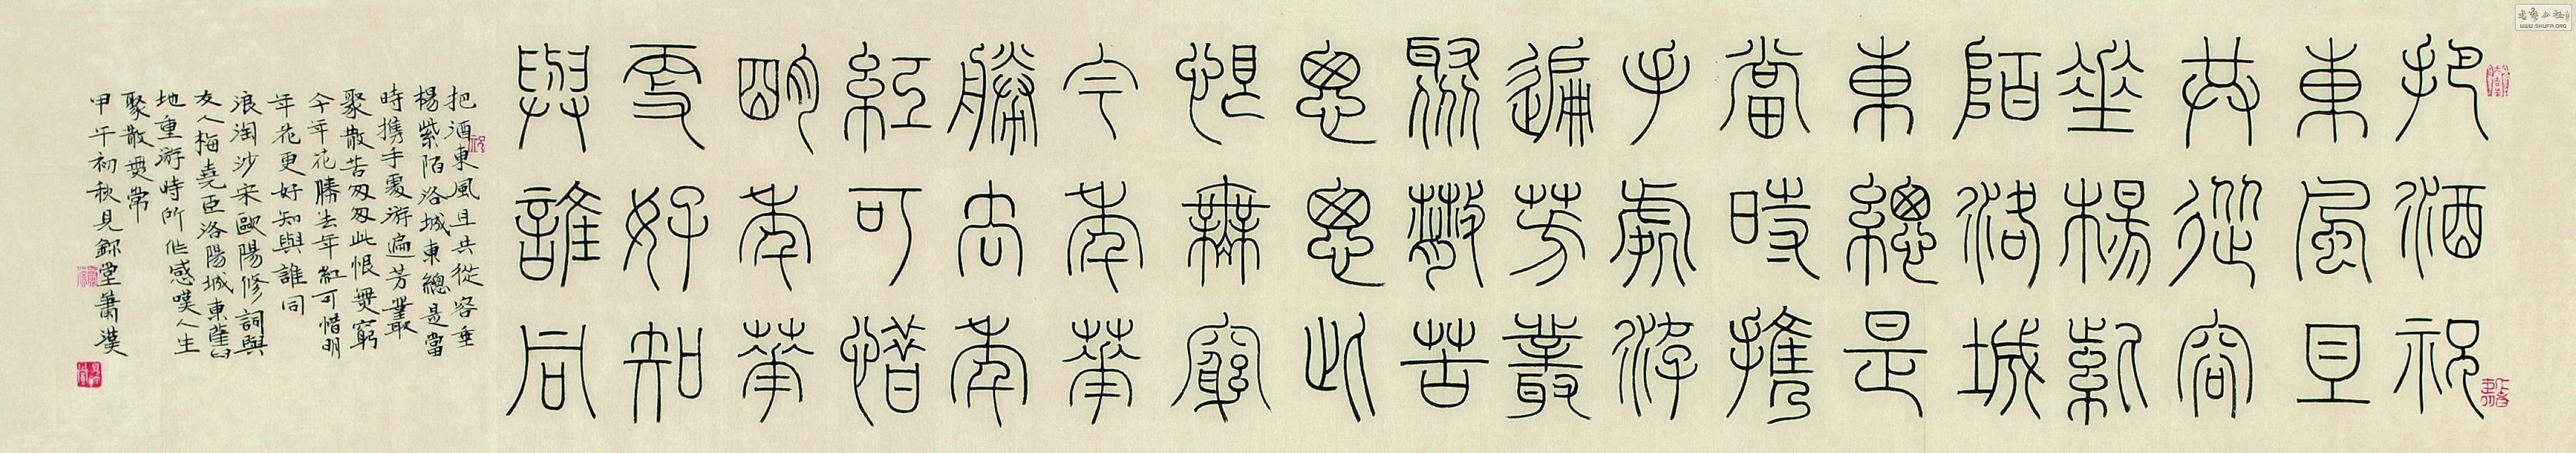 把酒祝
東風且
共從容
垂楊紫
陌洛城
東總是
當時攜
手處游
遍芳叢
聚散苦
悤悤此
恨無窮
今年華
勝去年
紅可惜
朙年華
更好知
與誰同
把酒東風且共從容垂
楊紫陌洛城東總是當
時携手處游遍芳叢
聚散苦匆匆此恨無窮
今年花勝去年紅可惜明
年花更好知與誰同
浪淘沙宋歐陽修詞與
友人梅堯臣洛陽城東舊
地重游時所作感嘆人生
聚散無常
甲午初秋見堂蕭漢
WWW.SHUFA.ORG